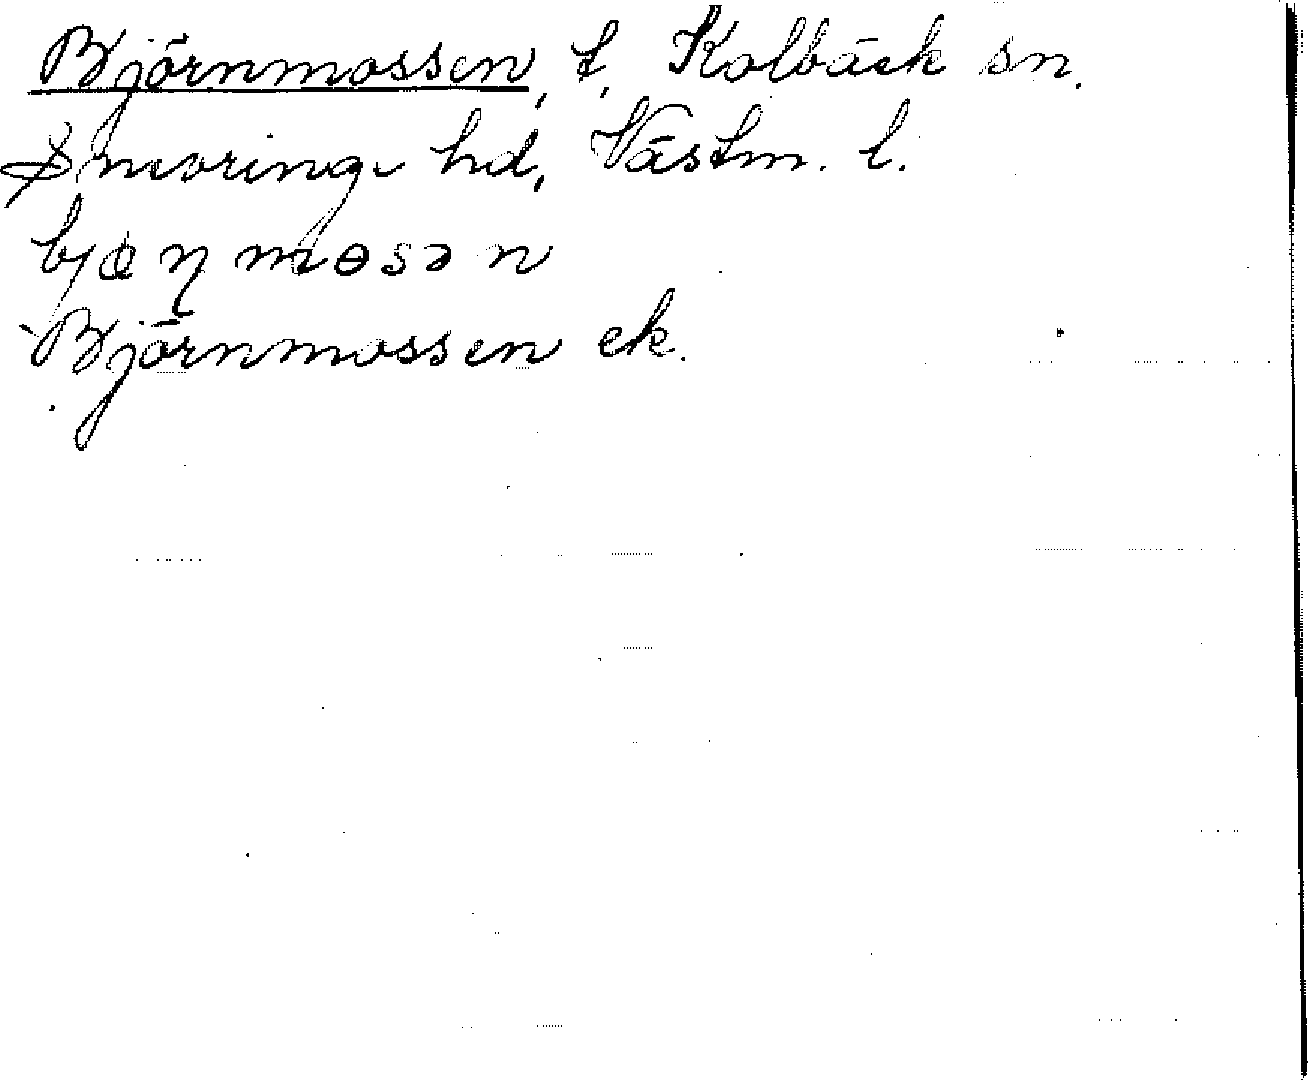 Björnmossen, t, Kolbäck sn.
Snevringe hd, Västm. l.
bjœɳmɵsən
Björnmossen ek.